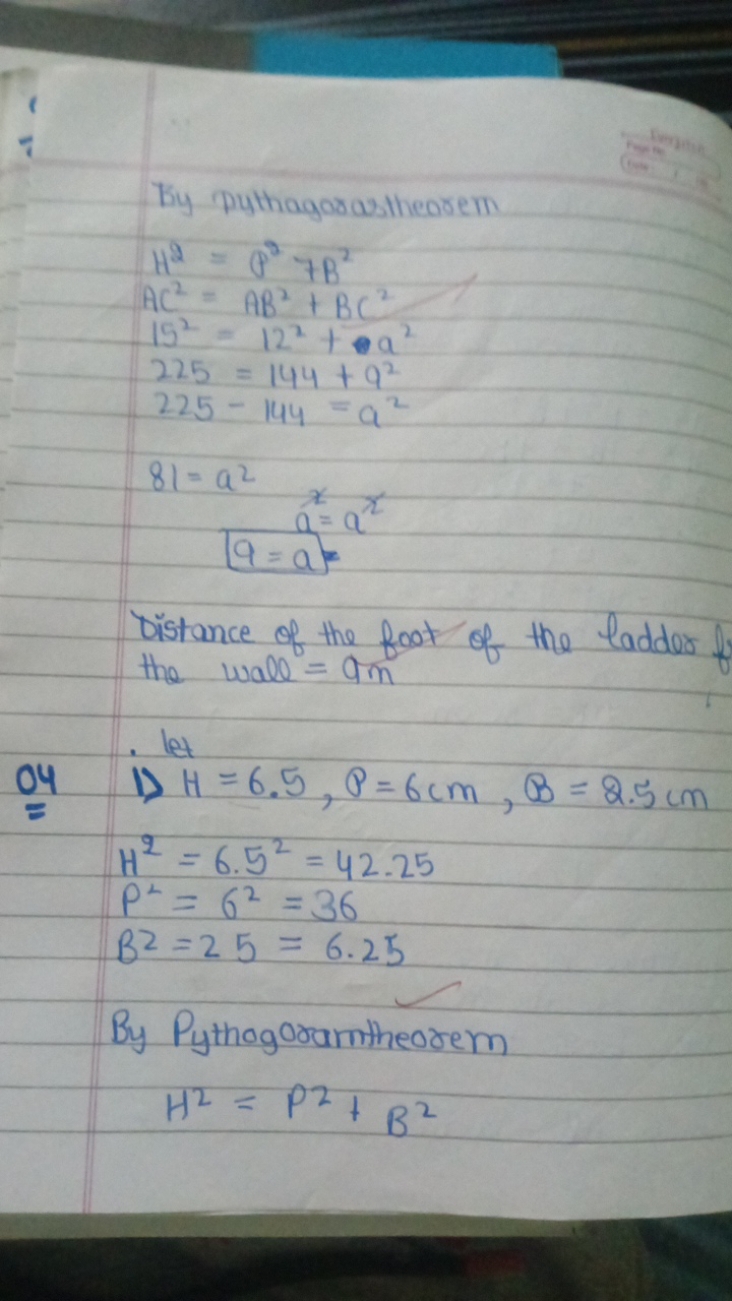 By pythagorastheorem
H² = P² + B²
AC² = AB² + BC²
15² = 12² + a²
225 = 144 + a²
225 - 144 = a²
81 = a²
a² = a²
9 = a
Distance of the foot of the ladder f
the wall = 9m
. let
04 1) H = 6.5, P = 6cm, B = 2.5 cm
H² = 6.5² = 42.25
P² = 6² = 36
B2 = 25 = 6.25
By Pythogoramtheorem
H² = P² + B²